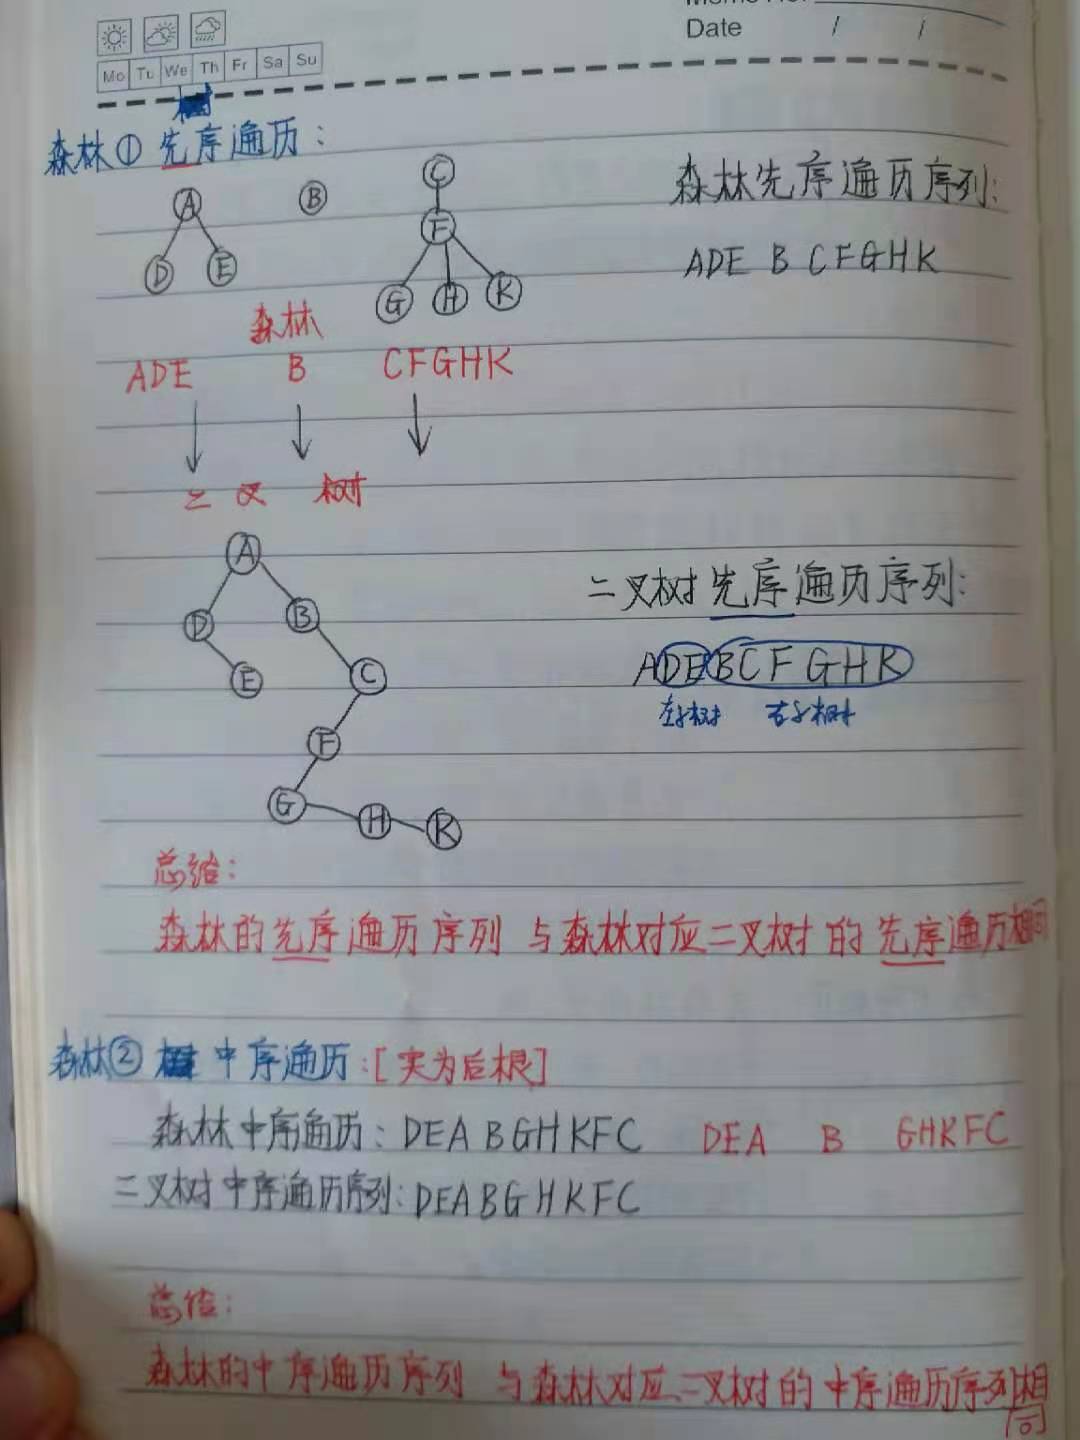 Date / /
Mo Tu We Th Fr Sa Su
森林① 先序遍历:
A B C
D E F
G H K
森林先序遍历序列:
ADE B CFGHK
森林
ADE B CFGHK
二叉 树
A
D B
E C
F
G H K
二叉树先序遍历序列:
ADEBCFGHK
左子树 右子树
总结:
森林的先序遍历序列 与森林对应二叉树的先序遍历相同
森林② 中序遍历:[实为后根]
森林中序遍历: DEABGHKFC DEA B GHKFC
二叉树中序遍历序列: DEABGHKFC
总结:
森林的中序遍历序列 与森林对应二叉树的中序遍历序列相同